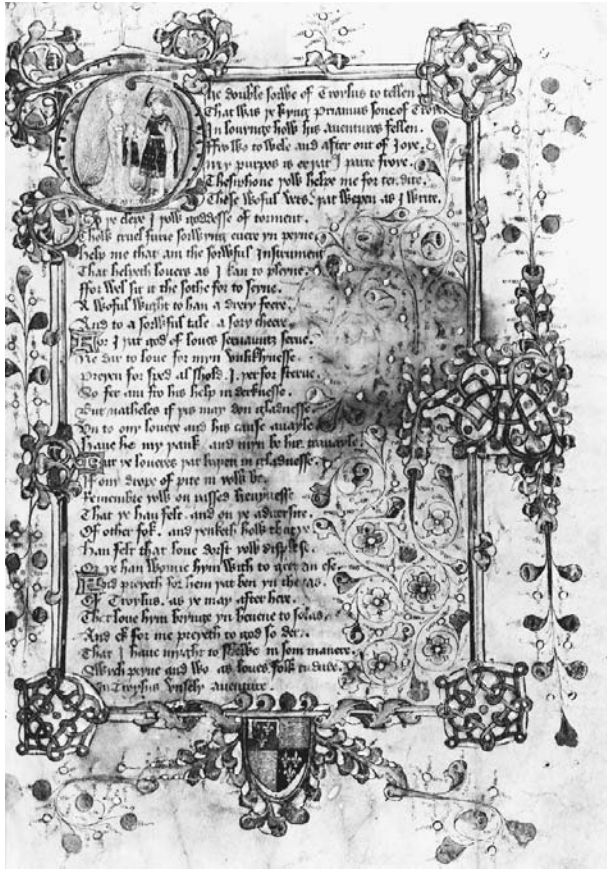 The double sorwe of Troylus to tellen
That was þe kyng Priamus sone of Troye
In louynge how his auentures fellen.
Ffro wo to wele and after out of Joye.
My purpos is er þat I parte froye.
Thesiphone yow helpe me for tendite.
These woful vers, þat wepen as I write.
To þe clepe I yow goddesse of torment.
Thow cruel furie sorwyng euere yn peyne
Help me that am the sorwful Instrument
That helpeth louers as I kan to pleyne.
Ffor wel sit it the sothe for to seyne.
A woful wight to han a drery feere.
And to a sorwful tale a sory cheere.
For I þat god of loues seruauntz serue.
Ne dar to loue for myn vnliklynesse.
Preyen for sped al shold. I. þerfor sterue.
So fer am fro his help in derknesse.
But natheles if þis may don gladnesse.
Vn to ony louere and his cause auayle
Haue he my þank and myn be his trauayle.
But ye loueres þat baþen in gladnesse.
If ony drope of pite in yow be.
Remembre yow on passed heuynesse
That ye han felt. and on þe aduersite.
Of other folk. and þenketh how that ye
Han felt that loue dorst yow displese.
Or ye han wonne hym with to gret an ese.
And preyeth for hem þat ben yn the cas.
Of Troylus. as ye may after here.
That loue hym brynge yn heuene to solas.
And ek for me preyeth to god so dere.
That I haue myght to shewe in som manere.
Swych peyne and wo as loues folk endure.
In Troylus vnsely auenture.